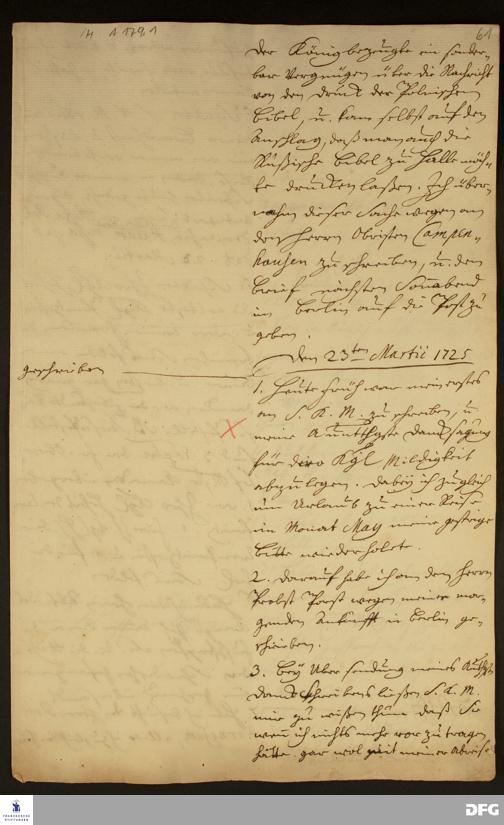 61
der König bezeugte ein sonder-
bar Vergnügen über die Nachricht
von dem Druck der Polnischen
Bibel, u. kam selbst auf den
Anschlag, daß man auch die
Rußische Bibel zu Halle möch-
te drucken laßen. Ich über-
nahm dieser Sache wegen an
den Herrn Obristen Campen-
hausen zu schreiben, u. den
Brief nächsten Sonnabend
in Berlin auf die Post zu
geben.
Den 23ten Martii 1725
geschrieben
1. Heute früh war mein erstes
an S. K. M. zu schreiben, u.
meine Danksagung
für dero Kgl Mildigkeit
abzulegen. Dabey ich zugleich
um Urlaub zu einer Reise
im Monat May meine gestrige
Bitte wiederholete.
2. Darauf habe ich an den Herrn
Probst Porst wegen meiner mor-
genden Ankunfft in Berlin ge-
schrieben.
3. Bey Übersendung meines
Danck schreibens ließen S. K. M.
mir zu wißen thun daß Sie
wenn ich nichts mehr vor zu tragen
hätte gar wol mit meiner Abreise
FRANCKESCHE STIFTUNGEN
DFG